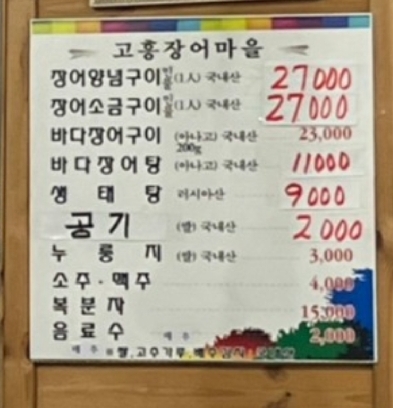 고흥장어마을
장어양념구이 민물 (1人) 국내산 27000
장어소금구이 민물 (1人) 국내산 27000
바다장어구이 (아나고) 국내산 200g 23,000
바다장어탕 (아나고) 국내산 11000
생태탕 러시아산 9000
공기 (쌀) 국내산 2000
누룽지 (쌀) 국내산 3,000
소주·맥주 4,000
복분자 15,000
음료수 2,000
쌀, 고추가루, 배추김치